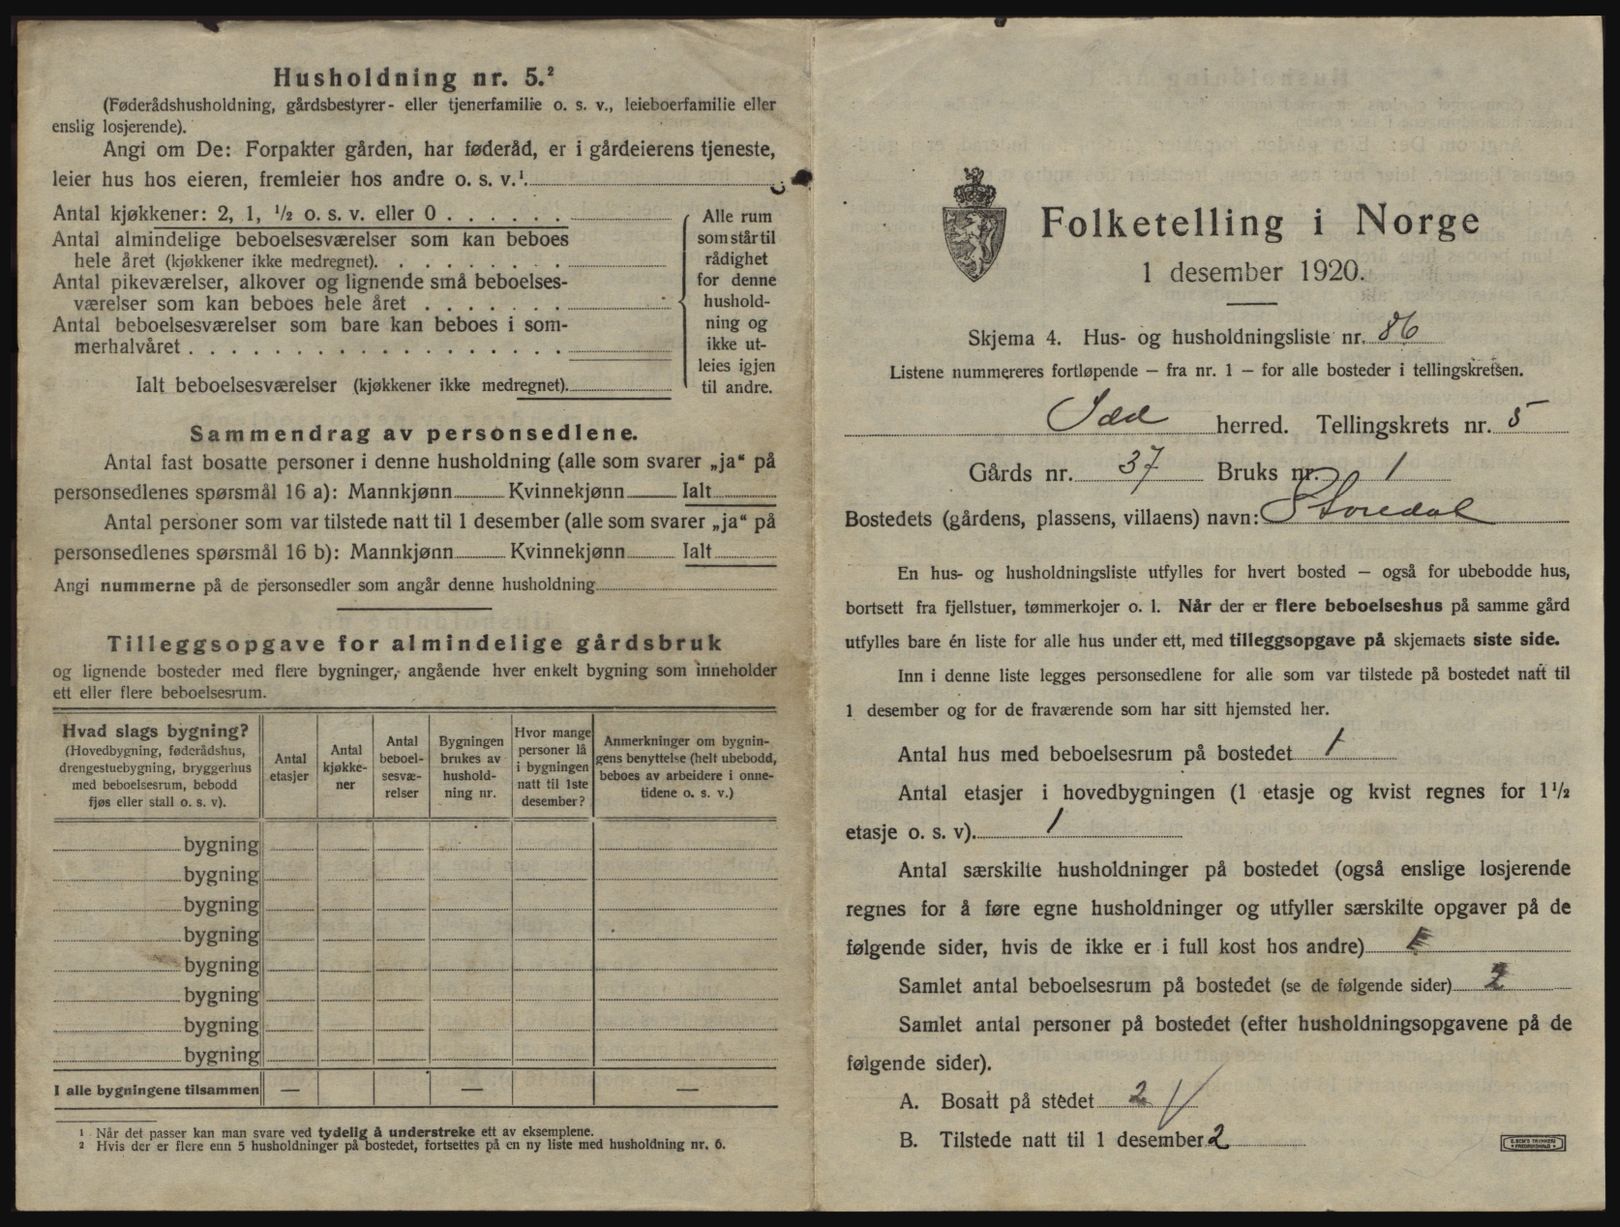 Husholdning nr. 5.²
(Føderådshusholdning, gårdsbestyrer- eller tjenerfamilie o. s. v., leieboerfamilie eller
enslig losjerende).
Angi om De: Forpakter gården, har føderåd, er i gårdeierens tjeneste,
leier hus hos eieren, fremleier hos andre o. s. v.¹.
Antal kjøkkener: 2, 1, ½ o. s. v. eller 0 . . . . . .
Antal almindelige beboelsesværelser som kan beboes
hele året (kjøkkener ikke medregnet). . . . . . . . .
Antal pikeværelser, alkover og lignende små beboelses-
værelser som kan beboes hele året . . . . . . .
Antal beboelsesværelser som bare kan beboes i som-
merhalvåret . . . . . . . . . . . . . . . . . .
Ialt beboelsesværelser (kjøkkener ikke medregnet).
Alle rum
som står til
rådighet
for denne
hushold-
ning og
ikke ut-
leies igjen
til andre.
Sammendrag av personsedlene.
Antal fast bosatte personer i denne husholdning (alle som svarer „ja“ på
personsedlenes spørsmål 16 a): Mannkjønn Kvinnekjønn Ialt
Antal personer som var tilstede natt til 1 desember (alle som svarer „ja“ på
personsedlenes spørsmål 16 b): Mannkjønn Kvinnekjønn Ialt
Angi nummerne på de personsedler som angår denne husholdning
Tilleggsopgave for almindelige gårdsbruk
og lignende bosteder med flere bygninger, angående hver enkelt bygning som inneholder
ett eller flere beboelsesrum.
Hvad slags bygning?
(Hovedbygning, føderådshus,
drengestuebygning, bryggerhus
med beboelsesrum, bebodd
fjøs eller stall o. s. v).
Antal
etasjer
Antal
kjøkke-
ner
Antal
beboel-
sesvæ-
relser
Bygningen
brukes av
hushold-
ning nr.
Hvor mange
personer lå
i bygningen
natt til 1ste
desember?
Anmerkninger om bygnin-
gens benyttelse (helt ubebodd,
beboes av arbeidere i onne-
tidene o. s. v.)
bygning
bygning
bygning
bygning
bygning
bygning
bygning
bygning
I alle bygningene tilsammen — — —
¹ Når det passer kan man svare ved tydelig å understreke ett av eksemplene.
² Hvis der er flere enn 5 husholdninger på bostedet, fortsettes på en ny liste med husholdning nr. 6.
Folketelling i Norge
1 desember 1920.
Skjema 4. Hus- og husholdningsliste nr. 86
Listene nummereres fortløpende — fra nr. 1 — for alle bosteder i tellingskretsen.
Idd herred. Tellingskrets nr. 5
Gårds nr. 37 Bruks nr. 1
Bostedets (gårdens, plassens, villaens) navn: Storedal
En hus- og husholdningsliste utfylles for hvert bosted — også for ubebodde hus,
bortsett fra fjellstuer, tømmerkojer o. l. Når der er flere beboelseshus på samme gård
utfylles bare én liste for alle hus under ett, med tilleggsopgave på skjemaets siste side.
Inn i denne liste legges personsedlene for alle som var tilstede på bostedet natt til
1 desember og for de fraværende som har sitt hjemsted her.
Antal hus med beboelsesrum på bostedet 1
Antal etasjer i hovedbygningen (1 etasje og kvist regnes for 1½
etasje o. s. v). 1
Antal særskilte husholdninger på bostedet (også enslige losjerende
regnes for å føre egne husholdninger og utfyller særskilte opgaver på de
følgende sider, hvis de ikke er i full kost hos andre)
Samlet antal beboelsesrum på bostedet (se de følgende sider) 2
Samlet antal personer på bostedet (efter husholdningsopgavene på de
følgende sider).
A. Bosatt på stedet 2
B. Tilstede natt til 1 desember 2